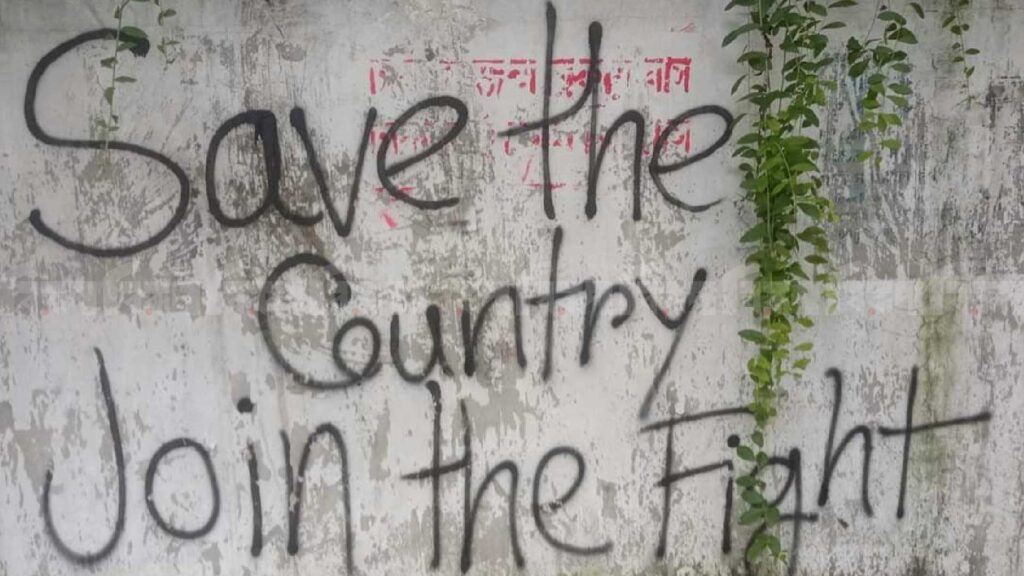 Save the
Country
Join the Fight